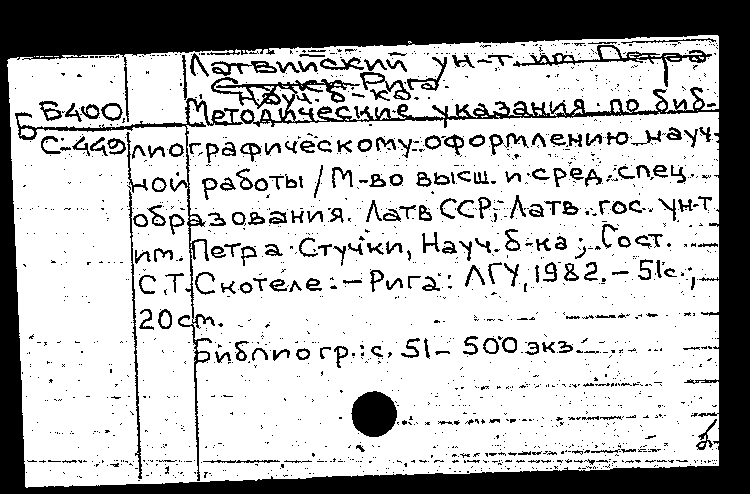 Латвийский ун-т. им Петра
Стучки Рига.
Науч. б-ка.
Б В400 Методические указания по биб-
С-449 лиографическому оформлению науч-
ной работы / М-во высш. и сред. спец.
образования. Латв ССР, Латв. гос. ун-т
им. Петра Стучки, Науч. б-ка; Сост.
С.Т. Скотеле. – Рига: ЛГУ, 1982. – 51с.;
20 см.
Библиогр.: с. 51 – 500 экз.